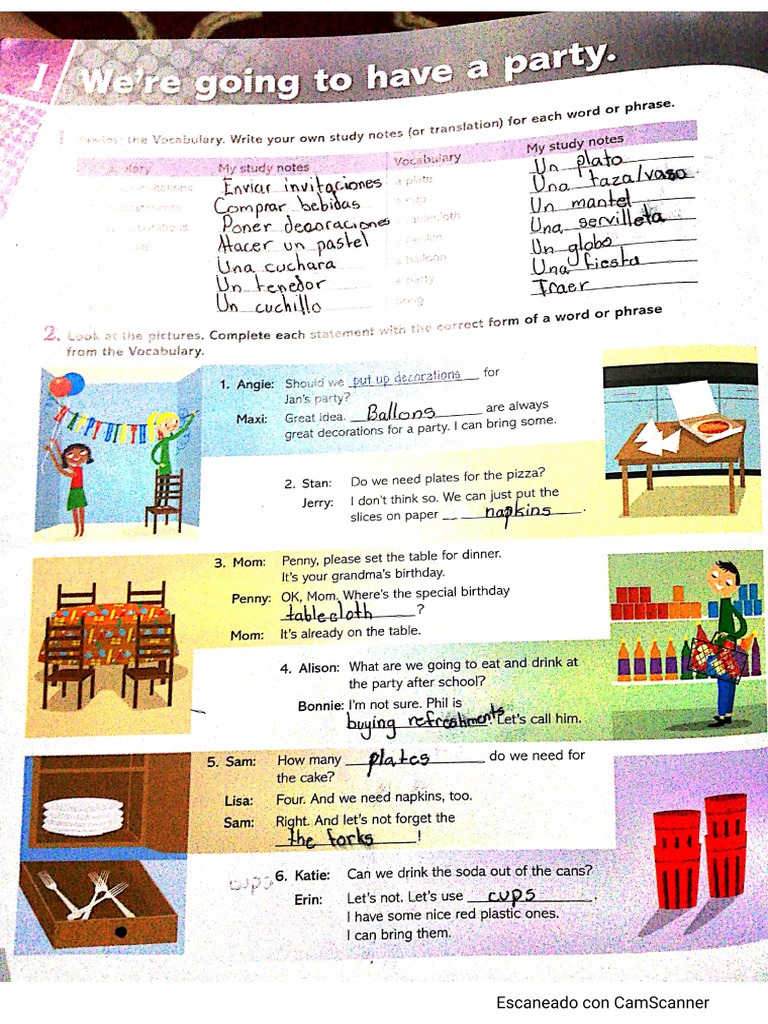 1 We're going to have a party.
the Vocabulary. Write your own study notes (or translation) for each word or phrase.
My study notes Vocabulary My study notes
Enviar invitaciones a plate Un plato
Comprar bebidas a cup Una taza/vaso
Poner decoraciones Un mantel
Hacer un pastel Una servilleta
Una cuchara a balloon Un globo
Un tenedor a party Una fiesta
Un cuchillo bring Traer
2. Look at the pictures. Complete each statement with the correct form of a word or phrase
from the Vocabulary.
HAPPY BIRTH
1. Angie: Should we put up decorations for
Jan's party?
Maxi: Great idea. Ballons are always
great decorations for a party. I can bring some.
2. Stan: Do we need plates for the pizza?
Jerry: I don't think so. We can just put the
slices on paper napkins.
3. Mom: Penny, please set the table for dinner.
It's your grandma's birthday.
Penny: OK, Mom. Where's the special birthday
tablecloth?
Mom: It's already on the table.
4. Alison: What are we going to eat and drink at
the party after school?
Bonnie: I'm not sure. Phil is
buying refreshments. Let's call him.
5. Sam: How many plates do we need for
the cake?
Lisa: Four. And we need napkins, too.
Sam: Right. And let's not forget the
the forks!
cups 6. Katie: Can we drink the soda out of the cans?
Erin: Let's not. Let's use cups.
I have some nice red plastic ones.
I can bring them.
Escaneado con CamScanner